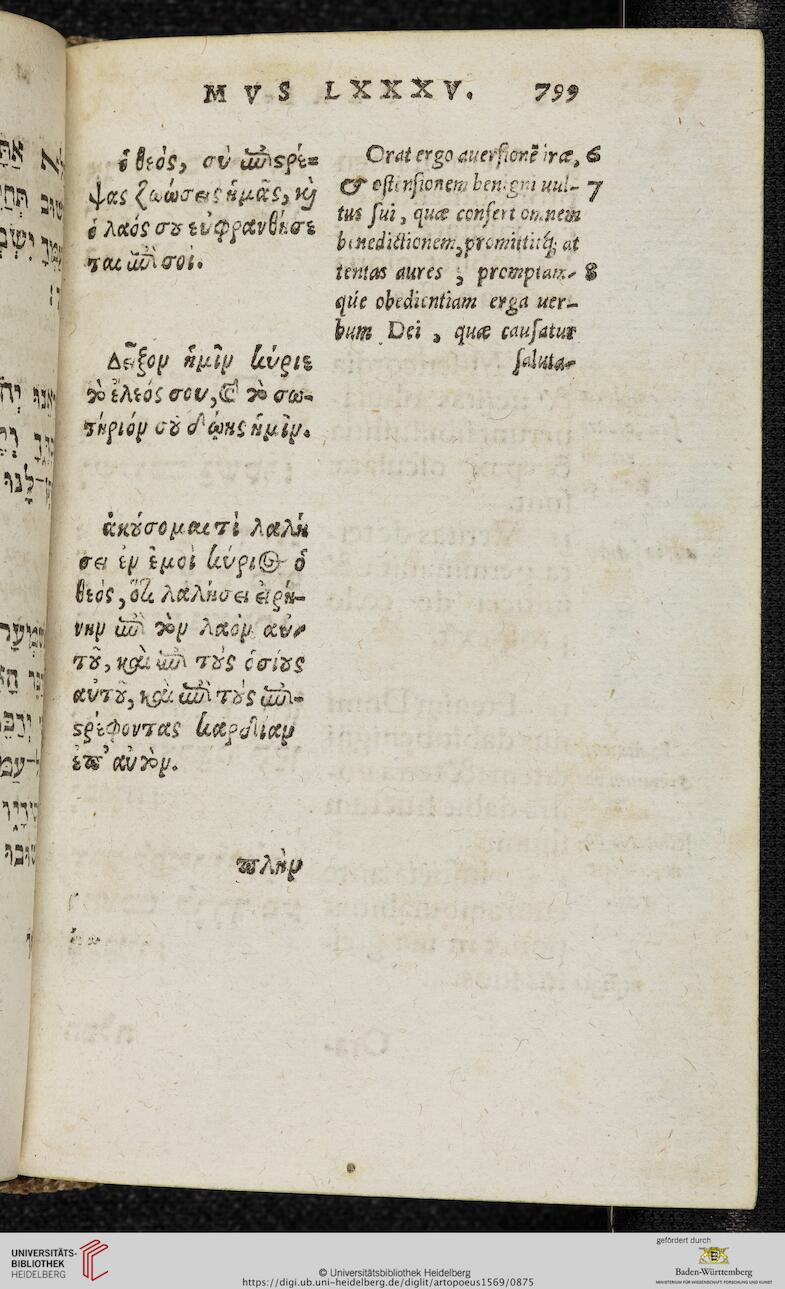 MVS LXXXV. 799
ὁ θεός, σὺ ἐπιστρέ=
ψας ζωώσεις ἡμᾶς, καὶ
ὁ λαός σου εὐφρανθήσε
ται ἐπὶ σοί.
Δεῖξον ἡμῖν κύριε
τὸ ἔλεός σου, καὶ τὸ σω-
τήριόν σου δῴης ἡμῖν.
ἀκούσομαι τί λαλή
σει ἐν ἐμοὶ κύριος ὁ
θεός, ὅτι λαλήσει εἰρή-
νην ἐπὶ τὸν λαὸν αὐ-
τοῦ, καὶ ἐπὶ τοὺς ὁσίους
αὐτοῦ, καὶ ἐπὶ τοὺς ἐπι-
στρέφοντας καρδίαν
ἐπ' αὐτόν.
πλὴν
Orat ergo auersionē iræ, 6
& ostensionem benigni uul- 7
tus sui, quæ confert omnem
benedictionem, promittitq; at
tentas aures, promptam- 8
que obedientiam erga uer-
bum Dei, quæ causatur
saluta-
UNIVERSITÄTS-
BIBLIOTHEK
HEIDELBERG
© Universitätsbibliothek Heidelberg
https://digi.ub.uni-heidelberg.de/diglit/artopoeus1569/0875
gefördert durch
Baden-Württemberg
MINISTERIUM FÜR WISSENSCHAFT, FORSCHUNG UND KUNST